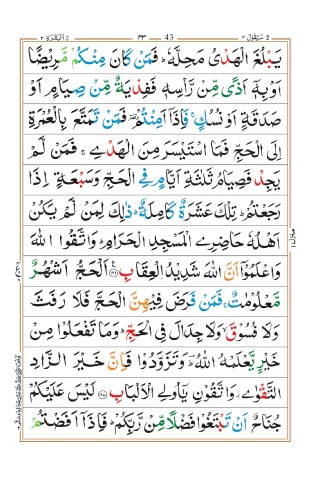 البقرة ٢ ٤٣ 43 سيقول ٢
يَبْلُغَ الْهَدْىُ مَحِلَّهٗ ؕ فَمَنْ كَانَ مِنْكُمْ مَّرِيْضًا
اَوْ بِهٖۤ اَذًى مِّنْ رَّاْسِهٖ فَفِدْيَةٌ مِّنْ صِيَامٍ اَوْ
صَدَقَةٍ اَوْ نُسُكٍ ۚ فَاِذَاۤ اَمِنْتُمْ ۥ فَمَنْ تَمَتَّعَ بِالْعُمْرَةِ
اِلَى الْحَجِّ فَمَا اسْتَيْسَرَ مِنَ الْهَدْىِ ۚ فَمَنْ لَّمْ
يَجِدْ فَصِيَامُ ثَلٰثَةِ اَيَّامٍ فِى الْحَجِّ وَسَبْعَةٍ اِذَا
رَجَعْتُمْ ؕ تِلْكَ عَشَرَةٌ كَامِلَةٌ ؕ ذٰلِكَ لِمَنْ لَّمْ يَكُنْ
اَهْلُهٗ حَاضِرِى الْمَسْجِدِ الْحَرَامِ ؕ وَاتَّقُوا اللّٰهَ
وَاعْلَمُوْۤا اَنَّ اللّٰهَ شَدِيْدُ الْعِقَابِ ﴿١٩٦﴾ اَلْحَجُّ اَشْهُرٌ
مَّعْلُوْمٰتٌ ۚ فَمَنْ فَرَضَ فِيْهِنَّ الْحَجَّ فَلَا رَفَثَ
وَلَا فُسُوْقَ ۙ وَلَا جِدَالَ فِى الْحَجِّ ؕ وَمَا تَفْعَلُوْا مِنْ
خَيْرٍ يَّعْلَمْهُ اللّٰهُ ؕ وَتَزَوَّدُوْا فَاِنَّ خَيْرَ الزَّادِ
التَّقْوٰى ۫ وَاتَّقُوْنِ يٰۤاُولِى الْاَلْبَابِ ﴿١٩٧﴾ لَيْسَ عَلَيْكُمْ
جُنَاحٌ اَنْ تَبْتَغُوْا فَضْلًا مِّنْ رَّبِّكُمْ ؕ فَاِذَاۤ اَفَضْتُمْ